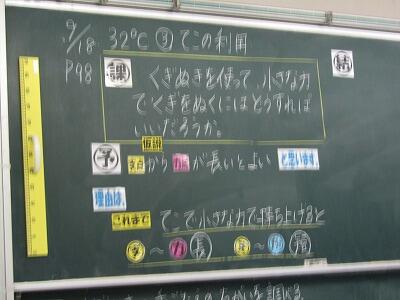 9/18 32℃ ③ てこの利用
P98
課 くぎぬきを使って、小さな力
でくぎをぬくにはどうすれば
いいだろうか。
結
仮説
予 支点から力点が長いとよい と思います。
理由は、
これまで てこで小さな力で持ち上げると
支〜力 長 支〜作 短